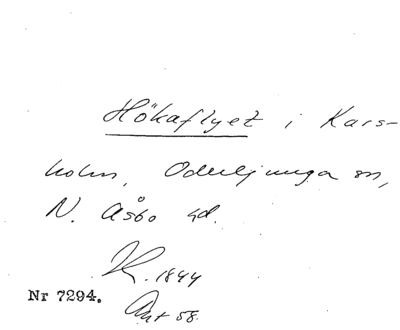 Hökaflyet i Kars-
holm, Oderljunga sn,
N. Åsbo hd.
K. 1844
Nr 7294.
Ant 58.